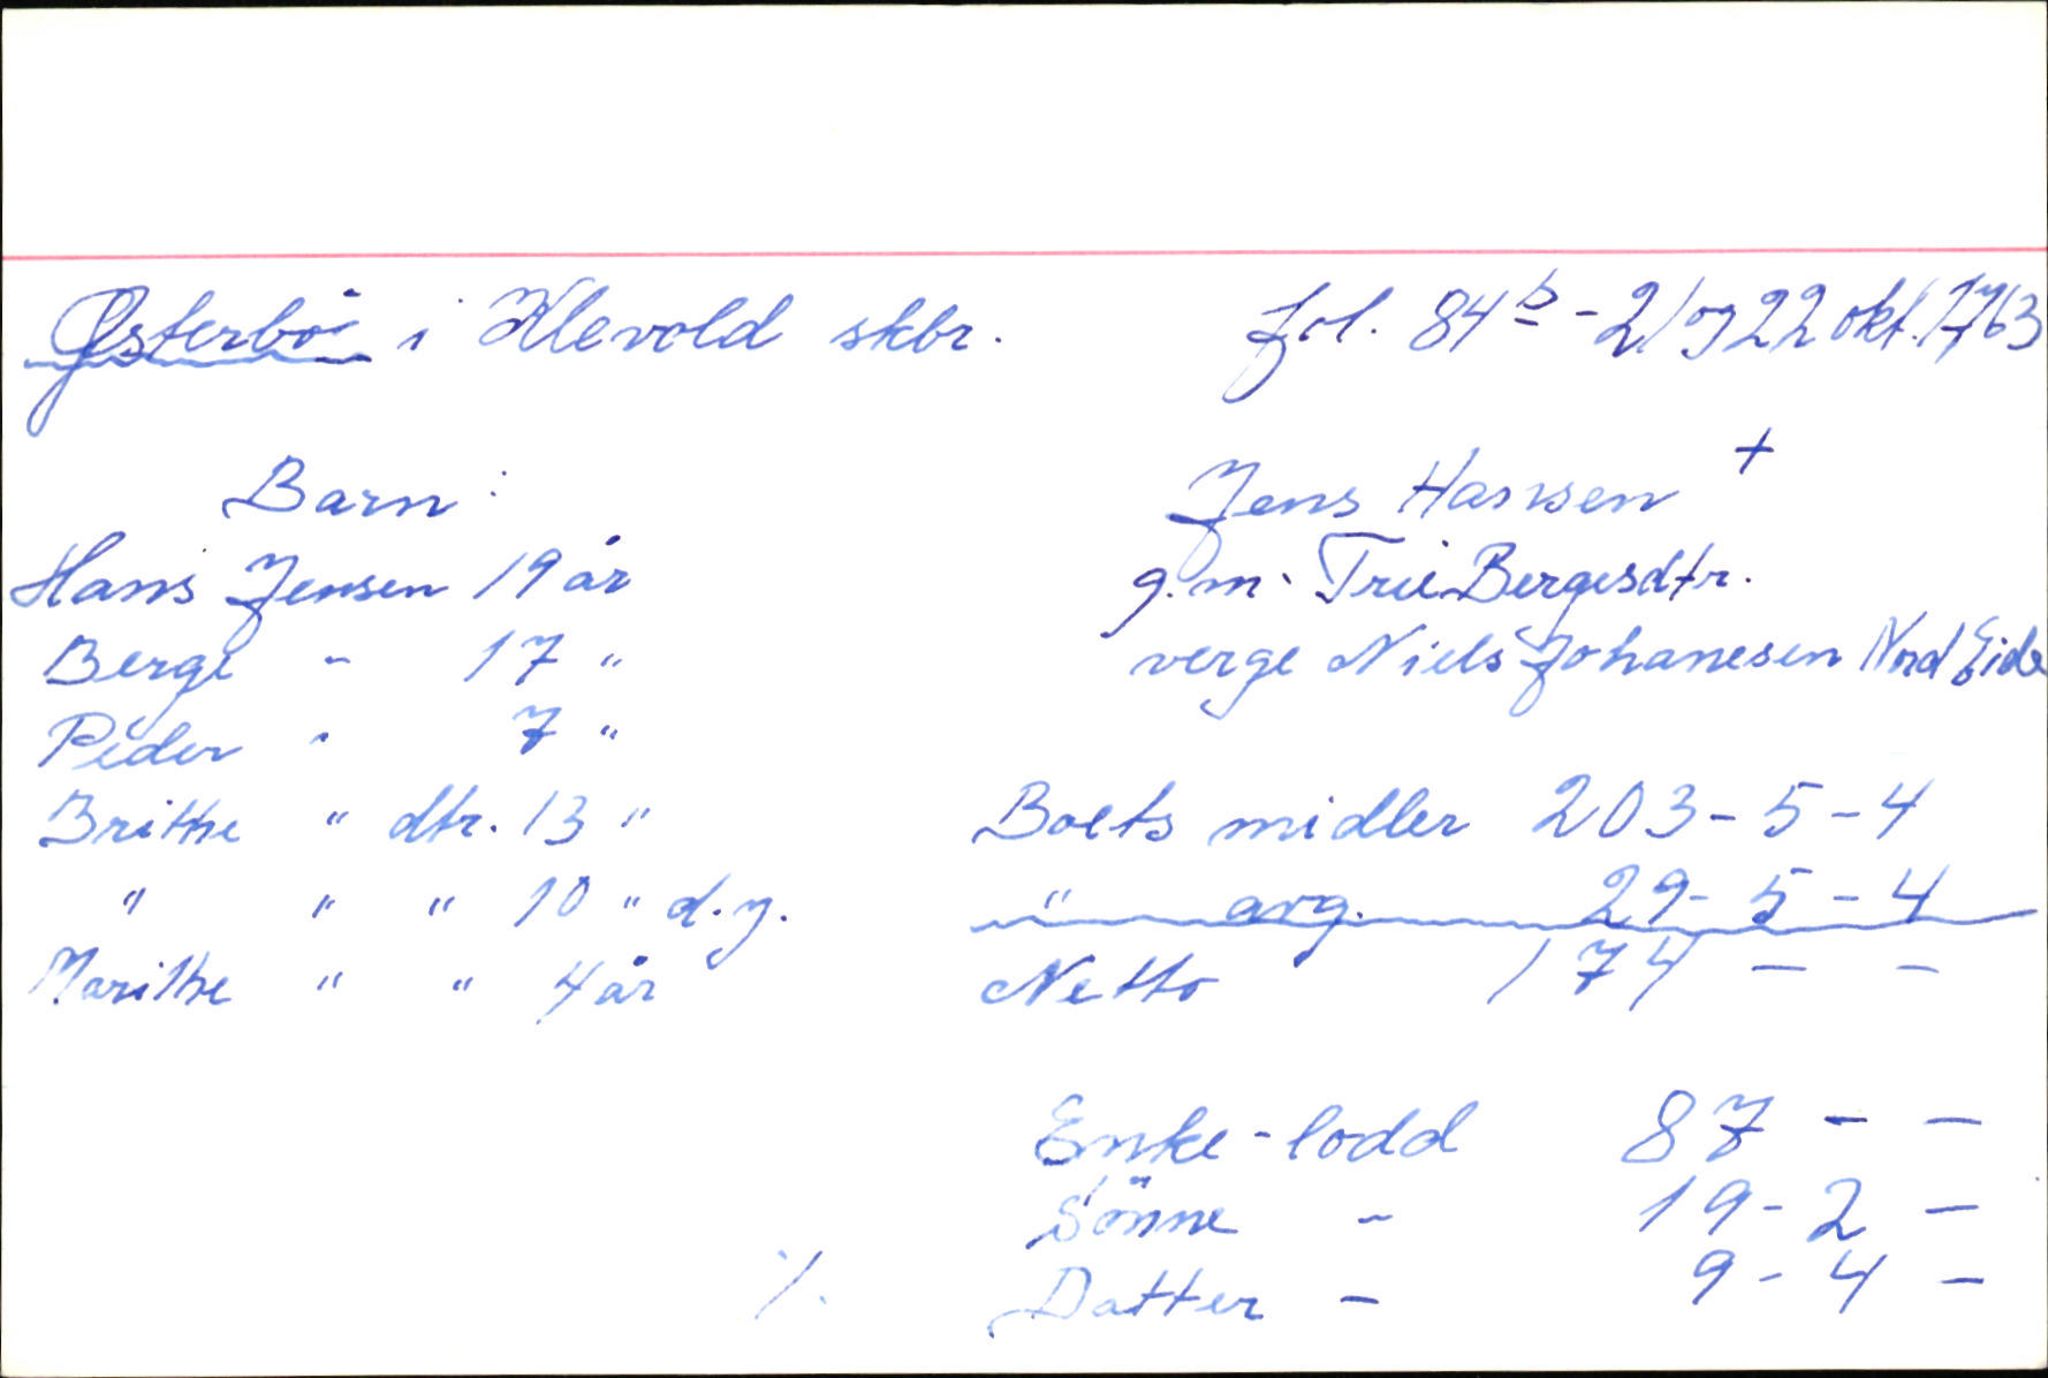 Østerbø i Klevold skbr.
fol. 84 b - 21 og 22 okt. 1763
Barn:
Hans Jensen 19 år
Berge - 17 "
Peder " 7 "
Brithe " dtr. 13 "
" " " 10 " d.y.
Marithe " " 4 år
Jens Hansen +
g.m. Trii Bergesdtr.
verge Niels Johanesen Nord Eide
Boets midler 203 - 5 - 4
" avg. 29 - 5 - 4
Netto 174 - -
Enke-lodd 87 - -
Sönne - 19 - 2 -
Datter - 9 - 4 -
./.